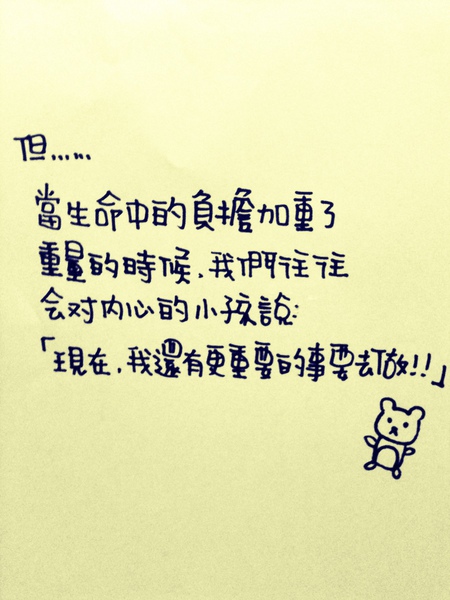 但......
當生命中的負擔加重了
重量的時候,我們往往
会对内心的小孩說:
「現在,我還有更重要的事要去做!!」